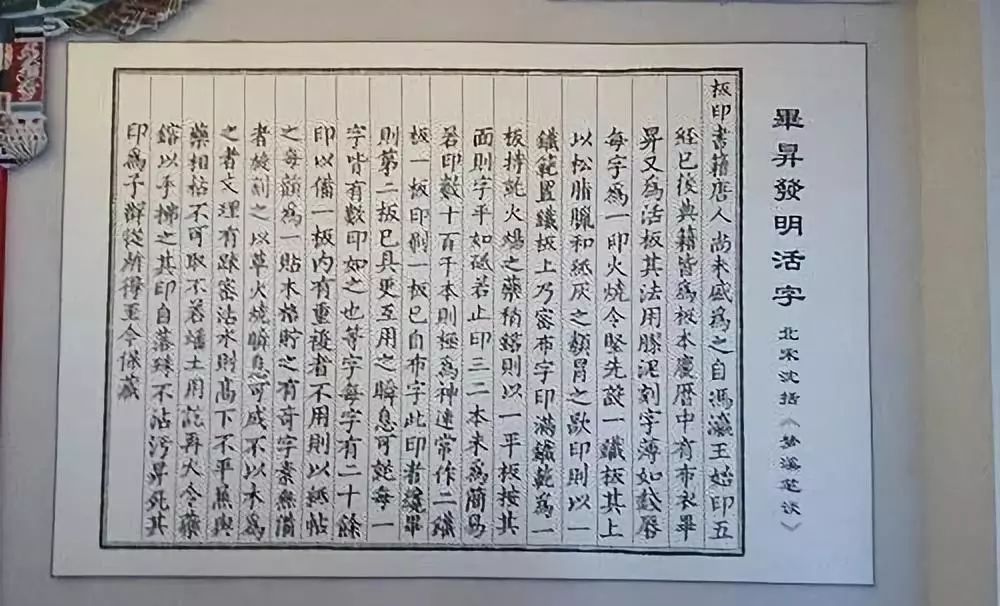 畢昇發明活字 北宋沈括《夢溪筆談》
板印書籍唐人尚未盛爲之自馮瀛王始印五
經已後典籍皆爲板本慶曆中有布衣畢
昇又爲活板其法用膠泥刻字薄如錢唇
每字爲一印火燒令堅先設一鐵板其上
以松脂臘和紙灰之類冒之欲印則以一
鐵範置鐵板上乃密布字印滿鐵範爲一
板持就火煬之藥稍鎔則以一平板按其
面則字平如砥若止印三二本未爲簡易
若印數十百千本則極爲神速常作二鐵
板一板印刷一板已自布字此印者纔畢
則第二板已具更互用之瞬息可就每一
字皆有數印如之也等字每字有二十餘
印以備一板內有重複者不用則以紙帖
之每韻爲一貼木格貯之有奇字素無備
者旋刻之以草火燒瞬息可成不以木爲
之者文理有疎密沾水則高下不平兼與
藥相粘不可取不若燔土用訖再火令藥
鎔以手拂之其印自落殊不沾汚昇死其
印爲予群從所得至今保藏